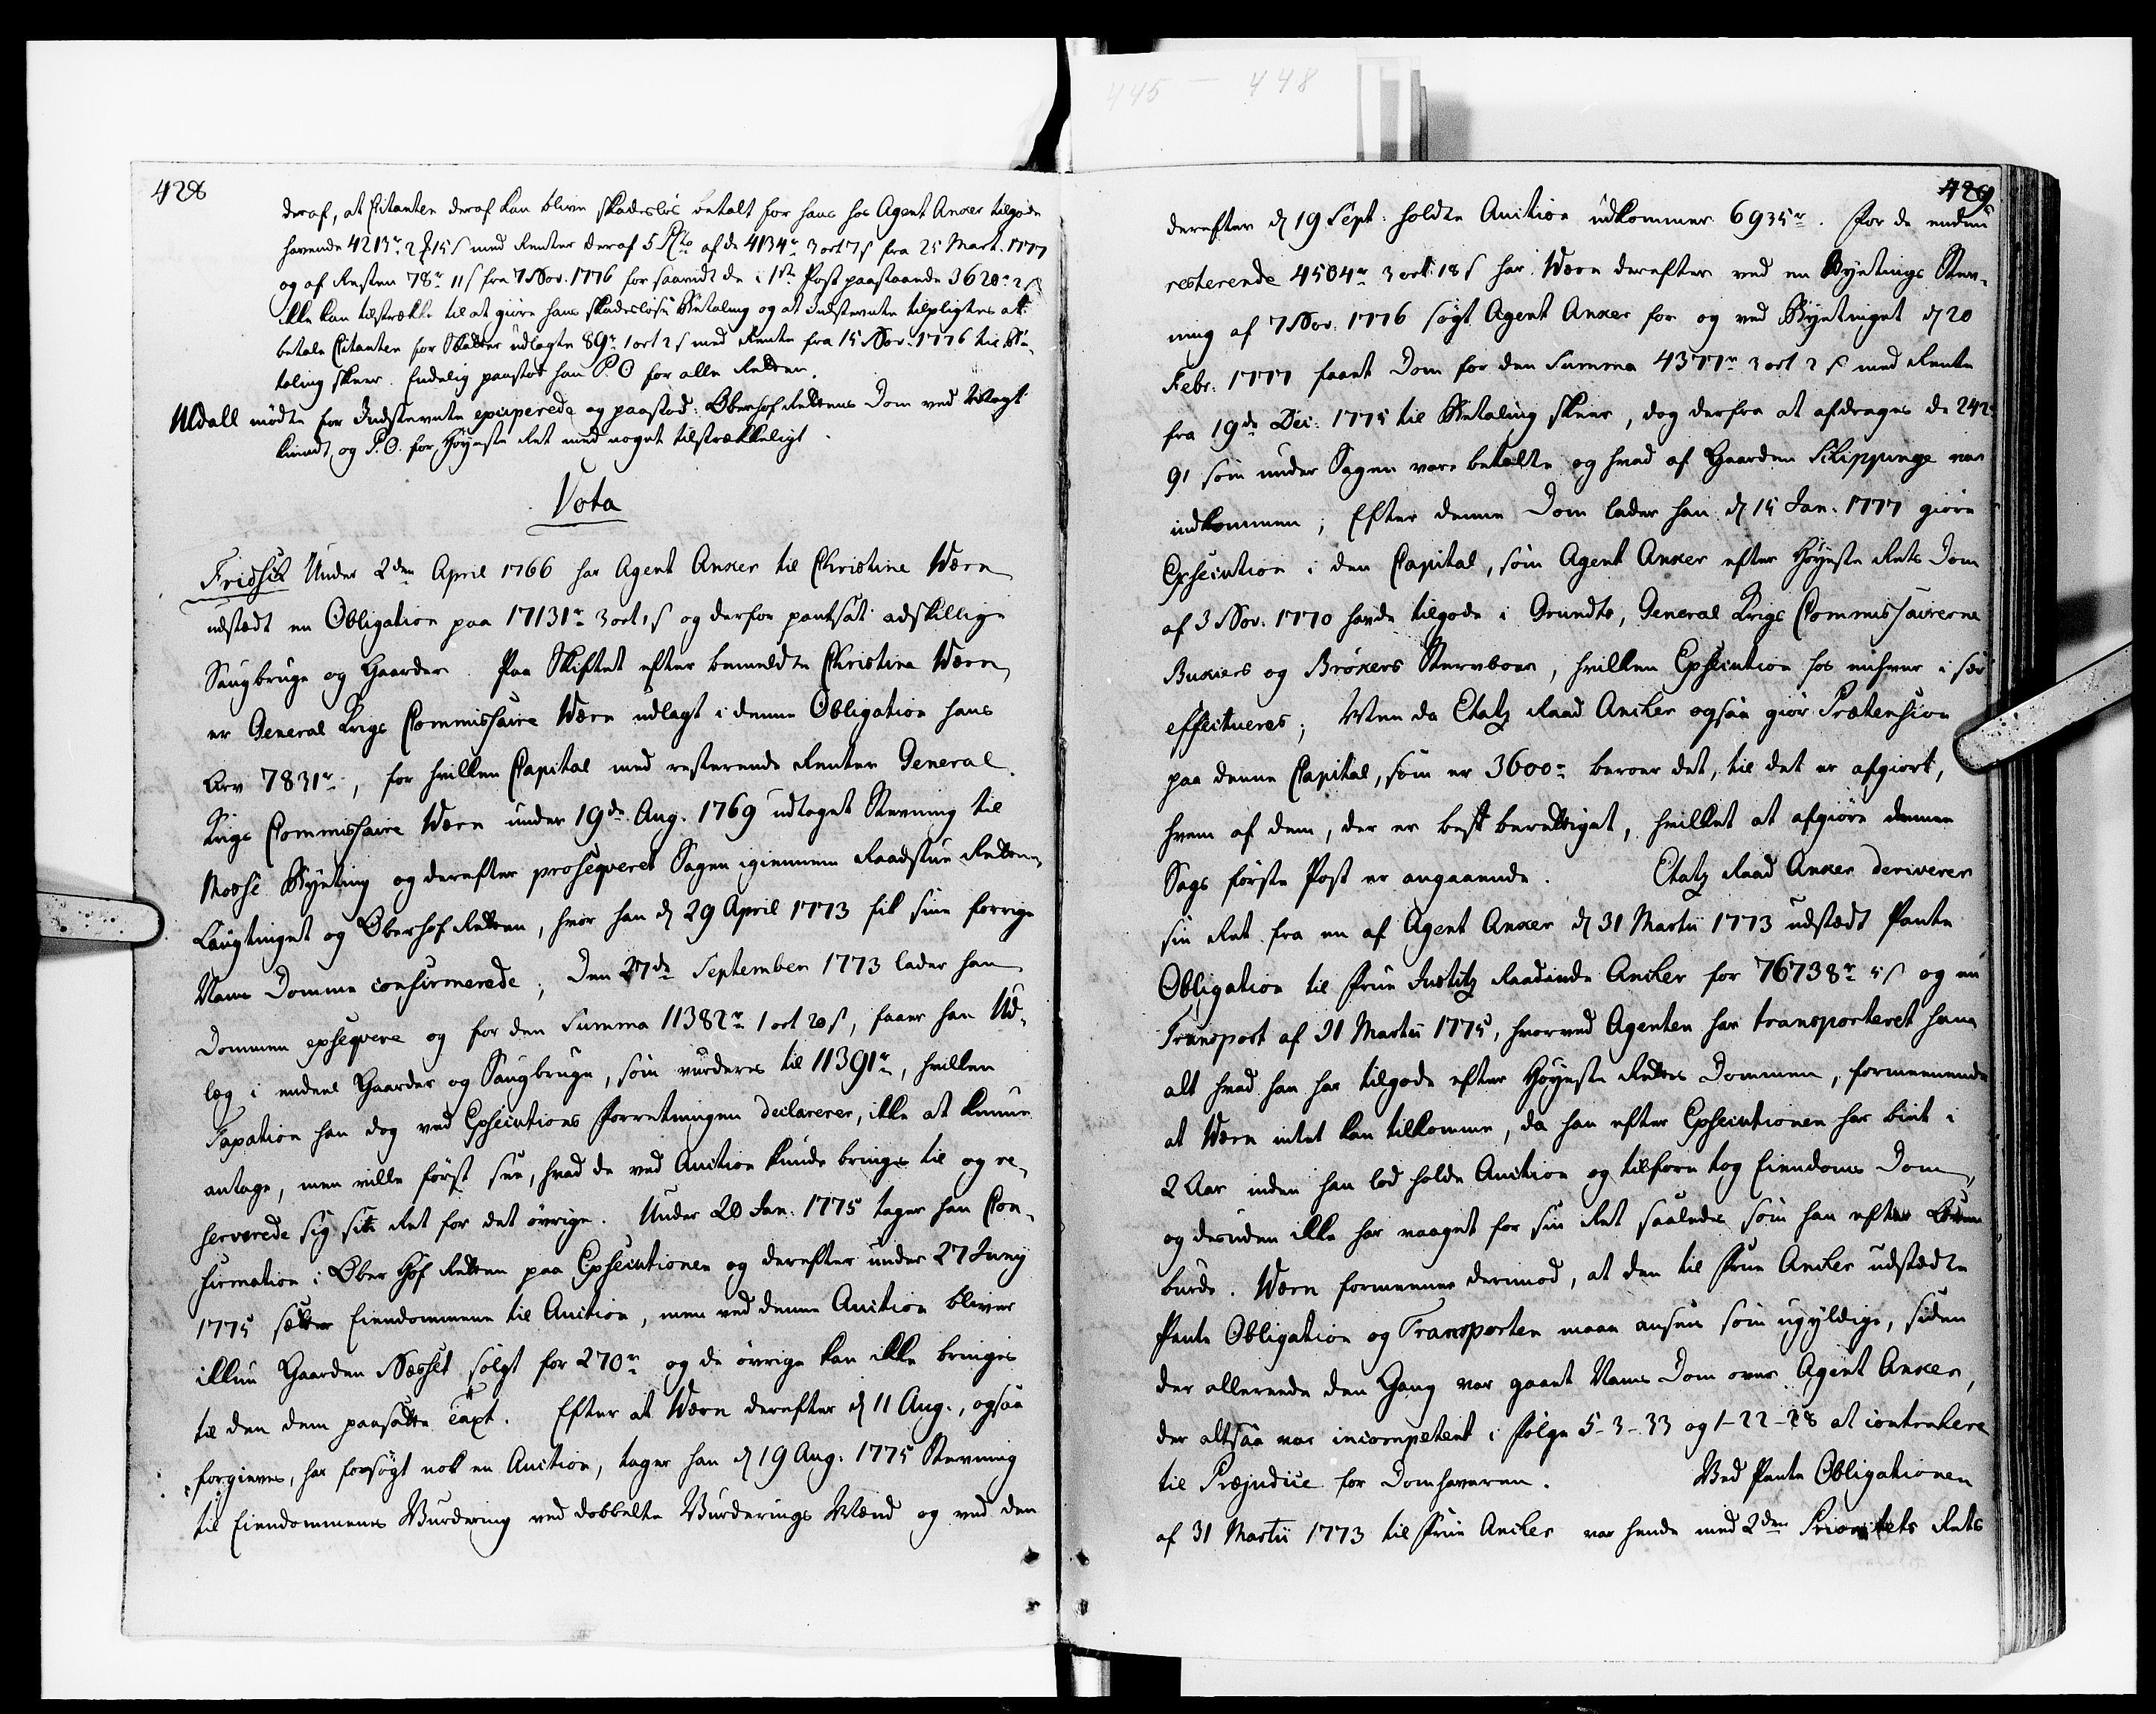 445 — 448
428
deraf, at Citanten deraf kan blive skadesløs betalt for hans hos Agent Anker tilgode
havende 4213r 2 15 s med Renter deraf 5 Pcto af de 4134r 3 ort 7 s fra 25 Mart. 1777
og af Resten 78r 11 s fra 7 Nov. 1776 for saavidt de i 1ste Post paastaaende 3620r 2 s
ikke kan tilstrække til at giøre hans skadesløse Betaling og at Indstevnte tilpligtes at
betale Citanten for Skatter udlagte 89r 1 ort 2 s med Rente fra 15 Nov. 1776 til Be-
taling skeer. Endelig paastod han P. O for alle Retter.
Udall mødte for Indstevnte exciperede og paastod: OberhofRettens Dom ved Magt
kiendt, og P. O. for Høyeste Ret med noget tilstrækkeligt.
Vota
Fridsch Under 2den April 1766 har Agent Anker til Christine Wærn
udstædt en Obligation paa 17131r 3 ort 1 s og derfor pantsat adskillige
Saugbruge og Gaarder. Paa Skiftet efter bemeldte Christine Wærn
er General Krigs Commissaire Wærn udlagt i denne Obligation hans
Arv 7831r, for hvilken Capital med resterende Renter General
Krigs Commissaire Wærn under 19de Aug. 1769 udtaget Stevning til
Mosse Byeting og derefter proseqveret Sagen igiennem Raadstue Retten
Laugtinget og OberhofRetten, hvor han d 29 April 1773 fik sine forrige
Nams Domme confirmerede; Den 27de September 1773 lader han
Dommen exseqvere og for den Summa 11382r 1 ort 20 s, faaer han Ud-
læg i endeel Gaarder og Saugbruge, som vurderes til 11391r, hvilken
Taxation han dog ved Exsecutions Forretningen declarerer, ikke at kunne
antage, men vilde først see, hvad de ved Auction kunde bringes til og re-
serverede sig sin Ret for det øvrige. Under 20 Jan. 1775 tager han Con-
firmation i Ober Hof Retten paa Exsecutionen og derefter under 27 Junij
1775 sætter Eiendommene til Auction, men ved denne Auction bliver
ikkun Gaarden Næsset solgt for 270r og de øvrige kan ikke bringes
til den dem paasatte Taxt. Efter at Wærn derefter d 11 Aug., ogsaa
forgieves, har forsøgt nok en Auction, tager han d 19 Aug. 1775 Stevning
til Eiendommenes Vurdering ved dobbelte Vurderings Mænd og ved den
429
derefter d 19 Sept. holdte Auction udkommer 6935r. For de endnu
resterende 4504r 3 ort 18 s har Wærn derefter ved en Byetings Stev-
ning af 7 Nov. 1776 søgt Agent Anker for og ved Byetinget d 20
Febr. 1777 faaet Dom for den Summa 4377r 3 ort 2 s med Rente
fra 19de Dec. 1775 til Betaling skeer, dog derfra at afdrages de 242r
91 som under Sagen vare betalte og hvad af Gaarden Kippinge var
indkommen; Efter denne Dom lader han d 15 Jan. 1777 giøre
Exsecution i den Capital, som Agent Anker efter Høyeste Rets Dom
af 3 Nov. 1770 havde tilgode i Grundts, General Krigs Commissairerne
Bukiers og Brøkers Stervboer, hvilken Exsecution hos enhver i sær
effectueres; Men da Etatz Raad Ancker ogsaa giør Prætension
paa denne Capital, som er 3600r beroer det, til det er afgiort,
hvem af dem, der er best berettiget, hvilket at afgiøre denne
Sags første Post er angaaende. Etatz Raad Anker deriverer
sin Ret fra en af Agent Anker d 31 Martii 1773 udstædt Pante
Obligation til Frue Justitz Raadinde Ancker for 76738r 5 s og en
Transport af 31 Martii 1775, hvorved Agenten har transporteret ham
alt hvad han har tilgode efter Høyeste Rettes Dommen, formeenende
at Wærn intet kan tilkomme, da han efter Exsecutionen har biet i
2 Aar inden han lod holde Auction og tilforn tog Eiendoms Dom,
og desuden ikke har vaaget for sin Ret saaledes som han efter Loven
burde. Wærn formeener derimod, at den til Frue Ancker udstædte
Pante Obligation og Transporten maae ansees som ugyldige, siden
der allerede den Gang var gaaet Nams Dom over Agent Anker,
der altsaa var incompetent i Følge 5-3-33 og 1-22-28 at contrahere
til Præjudice for Domhaveren. Ved Pante Obligationen
af 31 Martii 1773 til Frue Ancker var hende med 2den Prioritets Rets